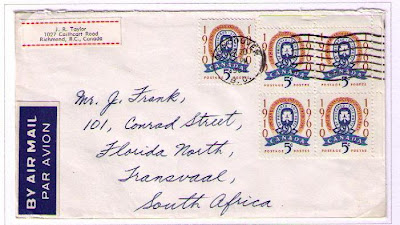 J. R. Taylor
1027 Cathcart Road
Richmond, B.C., Canada
1910 1960
CANADA
POSTAGE 5¢ POSTES
1910 1960
CANADA
POSTAGE 5¢ POSTES
1910 1960
CANADA
POSTAGE 5¢ POSTES
1910 1960
CANADA
POSTAGE 5¢ POSTES
1910 1960
CANADA
POSTAGE 5¢ POSTES
BY AIR MAIL
PAR AVION
Mr. J. Frank,
101, Conrad Street,
Florida North,
Transvaal,
South Africa.